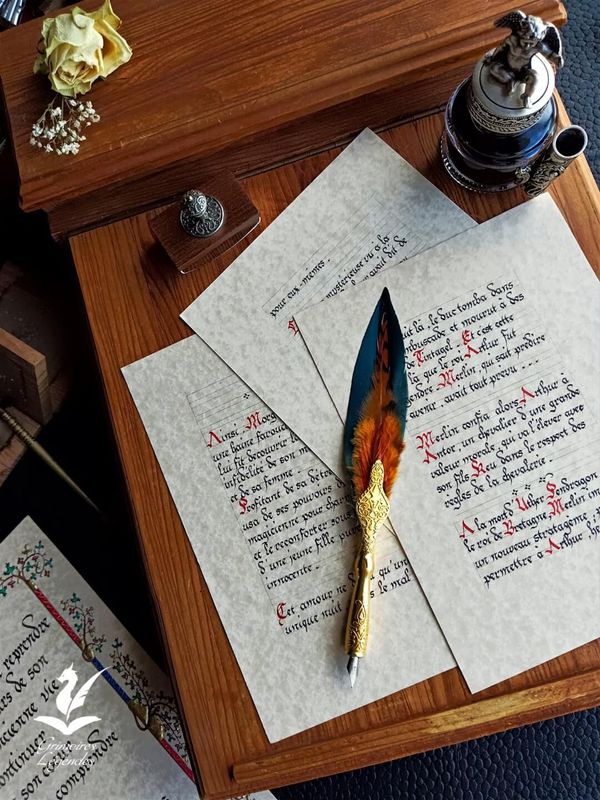 pour eux-mêmes.
mystérieuse vu à la
avait dit de
uit là, le duc tomba dans
mbuscade et mourut à des
de Tintagel. Et c'est cette
là que le roi Arthur fut
gendré. Merlin, qui sait prédire
avenir, avait tout prévu...
Merlin confia alors Arthur à
Antor, un chevalier d'une grande
valeur morale qui va l'élever avec
son fils Keu dans le respect des
règles de la chevalerie.
A la mort d'Uther Pendragon,
le roi de Bretagne, Merlin im
un nouveau stratagème
permettre à Arthur, he
Ainsi, Morg
une haine farou
lui fit découvrir l
infidélité de son m
et de sa femme.
Profitant de sa détre
usa de ses pouvoirs
magicienne pour charm
et le réconforter sous
d'une jeune fille pu
innocente.
Cet amour ne qu'un
unique nuit le mal
reprendre
rs de son
cienne vie
continuer
son cou
comprendre
Grimoires
Légendes